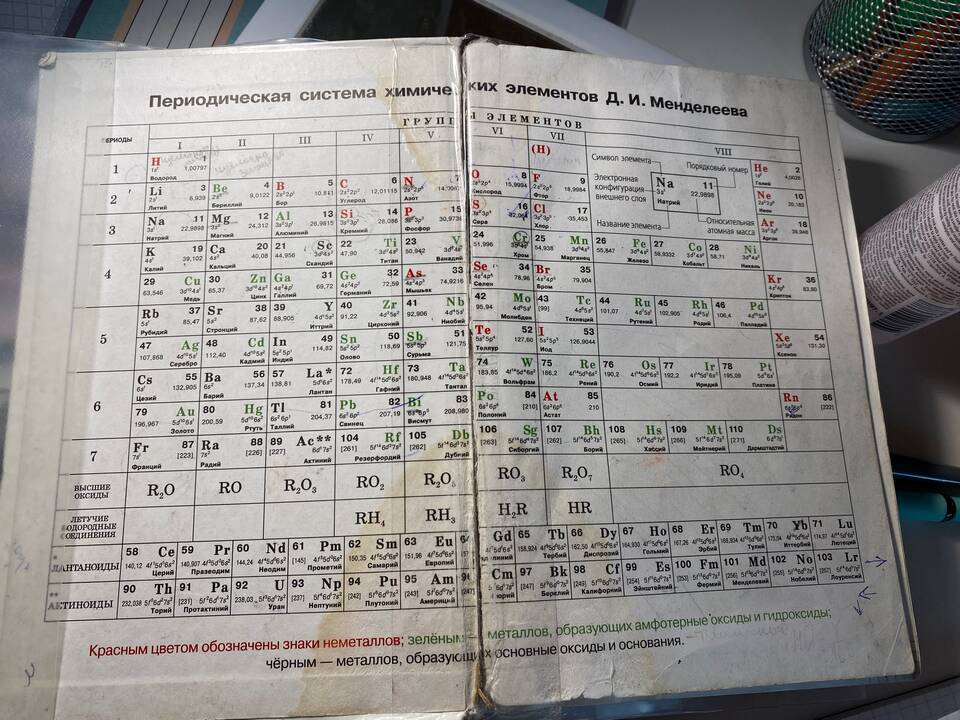 Периодическая система химических элементов Д. И. Менделеева
ГРУППЫ ЭЛЕМЕНТОВ
ПЕРИОДЫ I II III IV V VI VII VIII
1 H 1 1s¹ 1,00797 Водород (H) He 2 4,0026 Гелий
Символ элемента Порядковый номер
Электронная конфигурация внешнего слоя Na 11 3s¹ 22,9898 Натрий
Название элемента Относительная атомная масса
2 Li 3 2s¹ 6,939 Литий Be 4 2s² 9,0122 Бериллий B 5 2s²2p¹ 10,811 Бор C 6 2s²2p² 12,01115 Углерод N 7 2s²2p³ Азот O 8 2s²2p⁴ 15,9994 Кислород F 9 2s²2p⁵ 18,9984 Фтор Ne 10 20,183 Неон
3 Na 11 3s¹ 22,9898 Натрий Mg 12 3s² 24,312 Магний Al 13 3s²3p¹ 26,9815 Алюминий Si 14 3s²3p² 28,086 Кремний P 15 3s²3p³ 30,9738 Фосфор S 16 3s²3p⁴ 32,064 Сера Cl 17 3s²3p⁵ 35,453 Хлор Ar 18 39,948 Аргон
4 K 19 4s¹ 39,102 Калий Ca 20 4s² 40,08 Кальций 21 Sc 44,956 3d¹4s² Скандий 22 Ti 47,90 3d²4s² Титан 23 V 50,942 Ванадий 24 Cr 51,996 Хром 25 Mn 54,938 3d⁵4s² Марганец 26 Fe 55,847 3d⁶4s² Железо 27 Co 58,9332 3d⁷4s² Кобальт 28 Ni 58,71 3d⁸4s² Никель
29 Cu 63,546 3d¹⁰4s¹ Медь 30 Zn 65,37 3d¹⁰4s² Цинк Ga 31 4s²4p¹ 69,72 Галлий Ge 32 4s²4p² 72,59 Германий As 33 4s²4p³ 74,9216 Мышьяк Se 34 4s²4p⁴ 78,96 Селен Br 35 4s²4p⁵ 79,904 Бром Kr 36 4s²4p⁶ 83,80 Криптон
5 Rb 37 5s¹ 85,47 Рубидий Sr 38 5s² 87,62 Стронций 39 Y 88,905 4d¹5s² Иттрий 40 Zr 91,22 4d²5s² Цирконий 41 Nb 92,906 4d⁴5s¹ Ниобий 42 Mo 95,94 4d⁵5s¹ Молибден 43 Tc [99] 4d⁵5s² Технеций 44 Ru 101,07 4d⁷5s¹ Рутений 45 Rh 102,905 4d⁸5s¹ Родий 46 Pd 106,4 Палладий
47 Ag 107,868 4d¹⁰5s¹ Серебро 48 Cd 112,40 4d¹⁰5s² Кадмий In 49 5s²5p¹ 114,82 Индий Sn 50 5s²5p² 118,69 Олово Sb 51 5s²5p³ 121,75 Сурьма Te 52 5s²5p⁴ 127,60 Теллур I 53 5s²5p⁵ 126,9044 Иод Xe 54 5s²5p⁶ 131,30 Ксенон
6 Cs 55 6s¹ 132,905 Цезий Ba 56 6s² 137,34 Барий 57 La* 138,81 5d¹6s² Лантан 72 Hf 178,49 4f¹⁴5d²6s² Гафний 73 Ta 180,948 4f¹⁴5d³6s² Тантал 74 W 183,85 4f¹⁴5d⁴6s² Вольфрам 75 Re 186,2 4f¹⁴5d⁵6s² Рений 76 Os 190,2 4f¹⁴5d⁶6s² Осмий 77 Ir 192,2 4f¹⁴5d⁷6s² Иридий 78 Pt 195,09 Платина
79 Au 196,967 5d¹⁰6s¹ Золото 80 Hg 200,59 5d¹⁰6s² Ртуть Tl 81 6s²6p¹ 204,37 Таллий Pb 82 6s²6p² 207,19 Свинец Bi 83 6s²6p³ 208,980 Висмут Po 84 6s²6p⁴ [210] Полоний At 85 6s²6p⁵ 210 Астат Rn 86 6s²6p⁶ [222] Радон
7 Fr 87 7s¹ [223] Франций Ra 88 7s² [226] Радий 89 Ac** [227] 6d¹7s² Актиний 104 Rf [261] 5f¹⁴6d²7s² Резерфордий 105 Db [262] 5f¹⁴6d³7s² Дубний 106 Sg [263] 5f¹⁴6d⁴7s² Сиборгий 107 Bh [262] 5f¹⁴6d⁵7s² Борий 108 Hs [265] 5f¹⁴6d⁶7s² Хассий 109 Mt [266] 5f¹⁴6d⁷7s² Мейтнерий 110 Ds [271] Дармштадтий
ВЫСШИЕ ОКСИДЫ R₂O RO R₂O₃ RO₂ R₂O₅ RO₃ R₂O₇ RO₄
ЛЕТУЧИЕ ВОДОРОДНЫЕ СОЕДИНЕНИЯ RH₄ RH₃ H₂R HR
* ЛАНТАНОИДЫ 58 Ce 140,12 Церий 59 Pr 140,907 Празеодим 60 Nd 144,24 Неодим 61 Pm [145] Прометий 62 Sm 150,35 Самарий 63 Eu 151,96 Европий Gd 65 Tb 158,924 Тербий 66 Dy 162,50 Диспрозий 67 Ho 164,930 Гольмий 68 Er 167,26 Эрбий 69 Tm 168,934 Тулий 70 Yb 173,04 Иттербий 71 Lu 174,97 Лютеций
** АКТИНОИДЫ 90 Th 232,038 Торий 91 Pa [231] Протактиний 92 U 238,03 Уран 93 Np [237] Нептуний 94 Pu [242] Плутоний 95 Am [243] Америций Cm 97 Bk [247] Берклий 98 Cf [249] Калифорний 99 Es [254] Эйнштейний 100 Fm [253] Фермий 101 Md [256] Менделевий 102 No [255] Нобелий 103 Lr [257] Лоуренсий
Красным цветом обозначены знаки неметаллов; зелёным — металлов, образующих амфотерные оксиды и гидроксиды;
чёрным — металлов, образующих основные оксиды и основания.